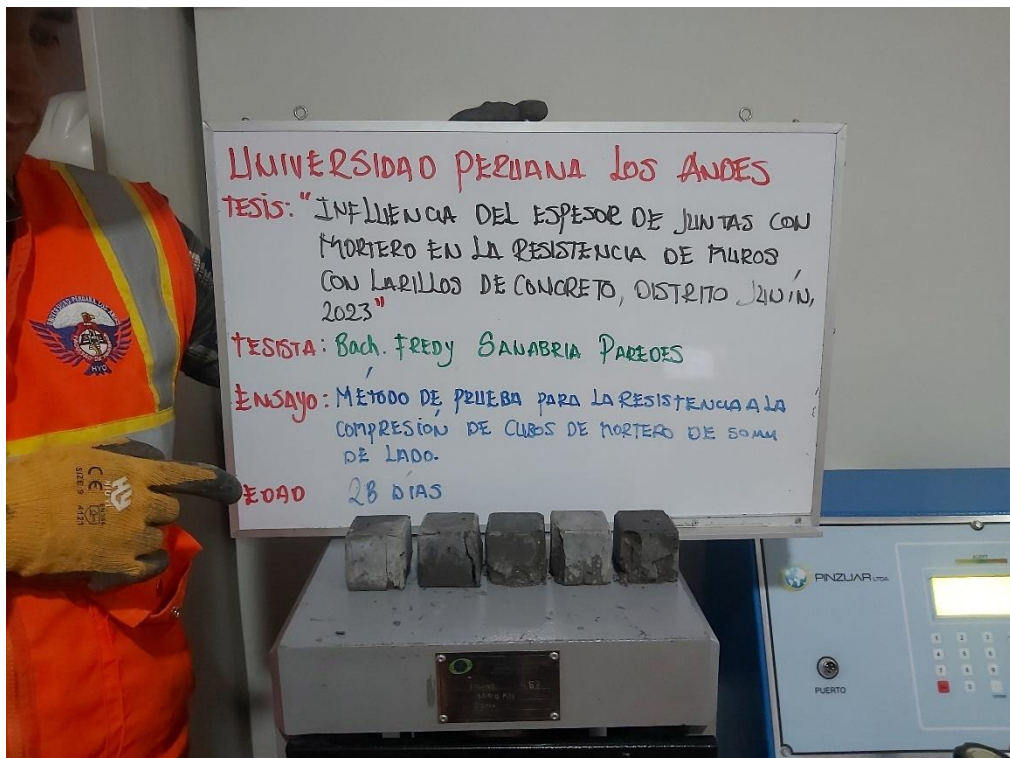 UNIVERSIDAD PERUANA LOS ANDES
TESIS: "INFLUENCIA DEL ESPESOR DE JUNTAS CON
MORTERO EN LA RESISTENCIA DE MUROS
CON LARILLOS DE CONCRETO, DISTRITO JUNÍN,
2023"
TESISTA: Bach. FREDY SANABRIA PAREDES
ENSAYO: MÉTODO DE PRUEBA PARA LA RESISTENCIA A LA
COMPRESIÓN DE CUBOS DE MORTERO DE 50MM
DE LADO.
EDAD 28 DÍAS
CE
SIZE: 9 4121
PINZUAR LTDA
PUERTO
HYO